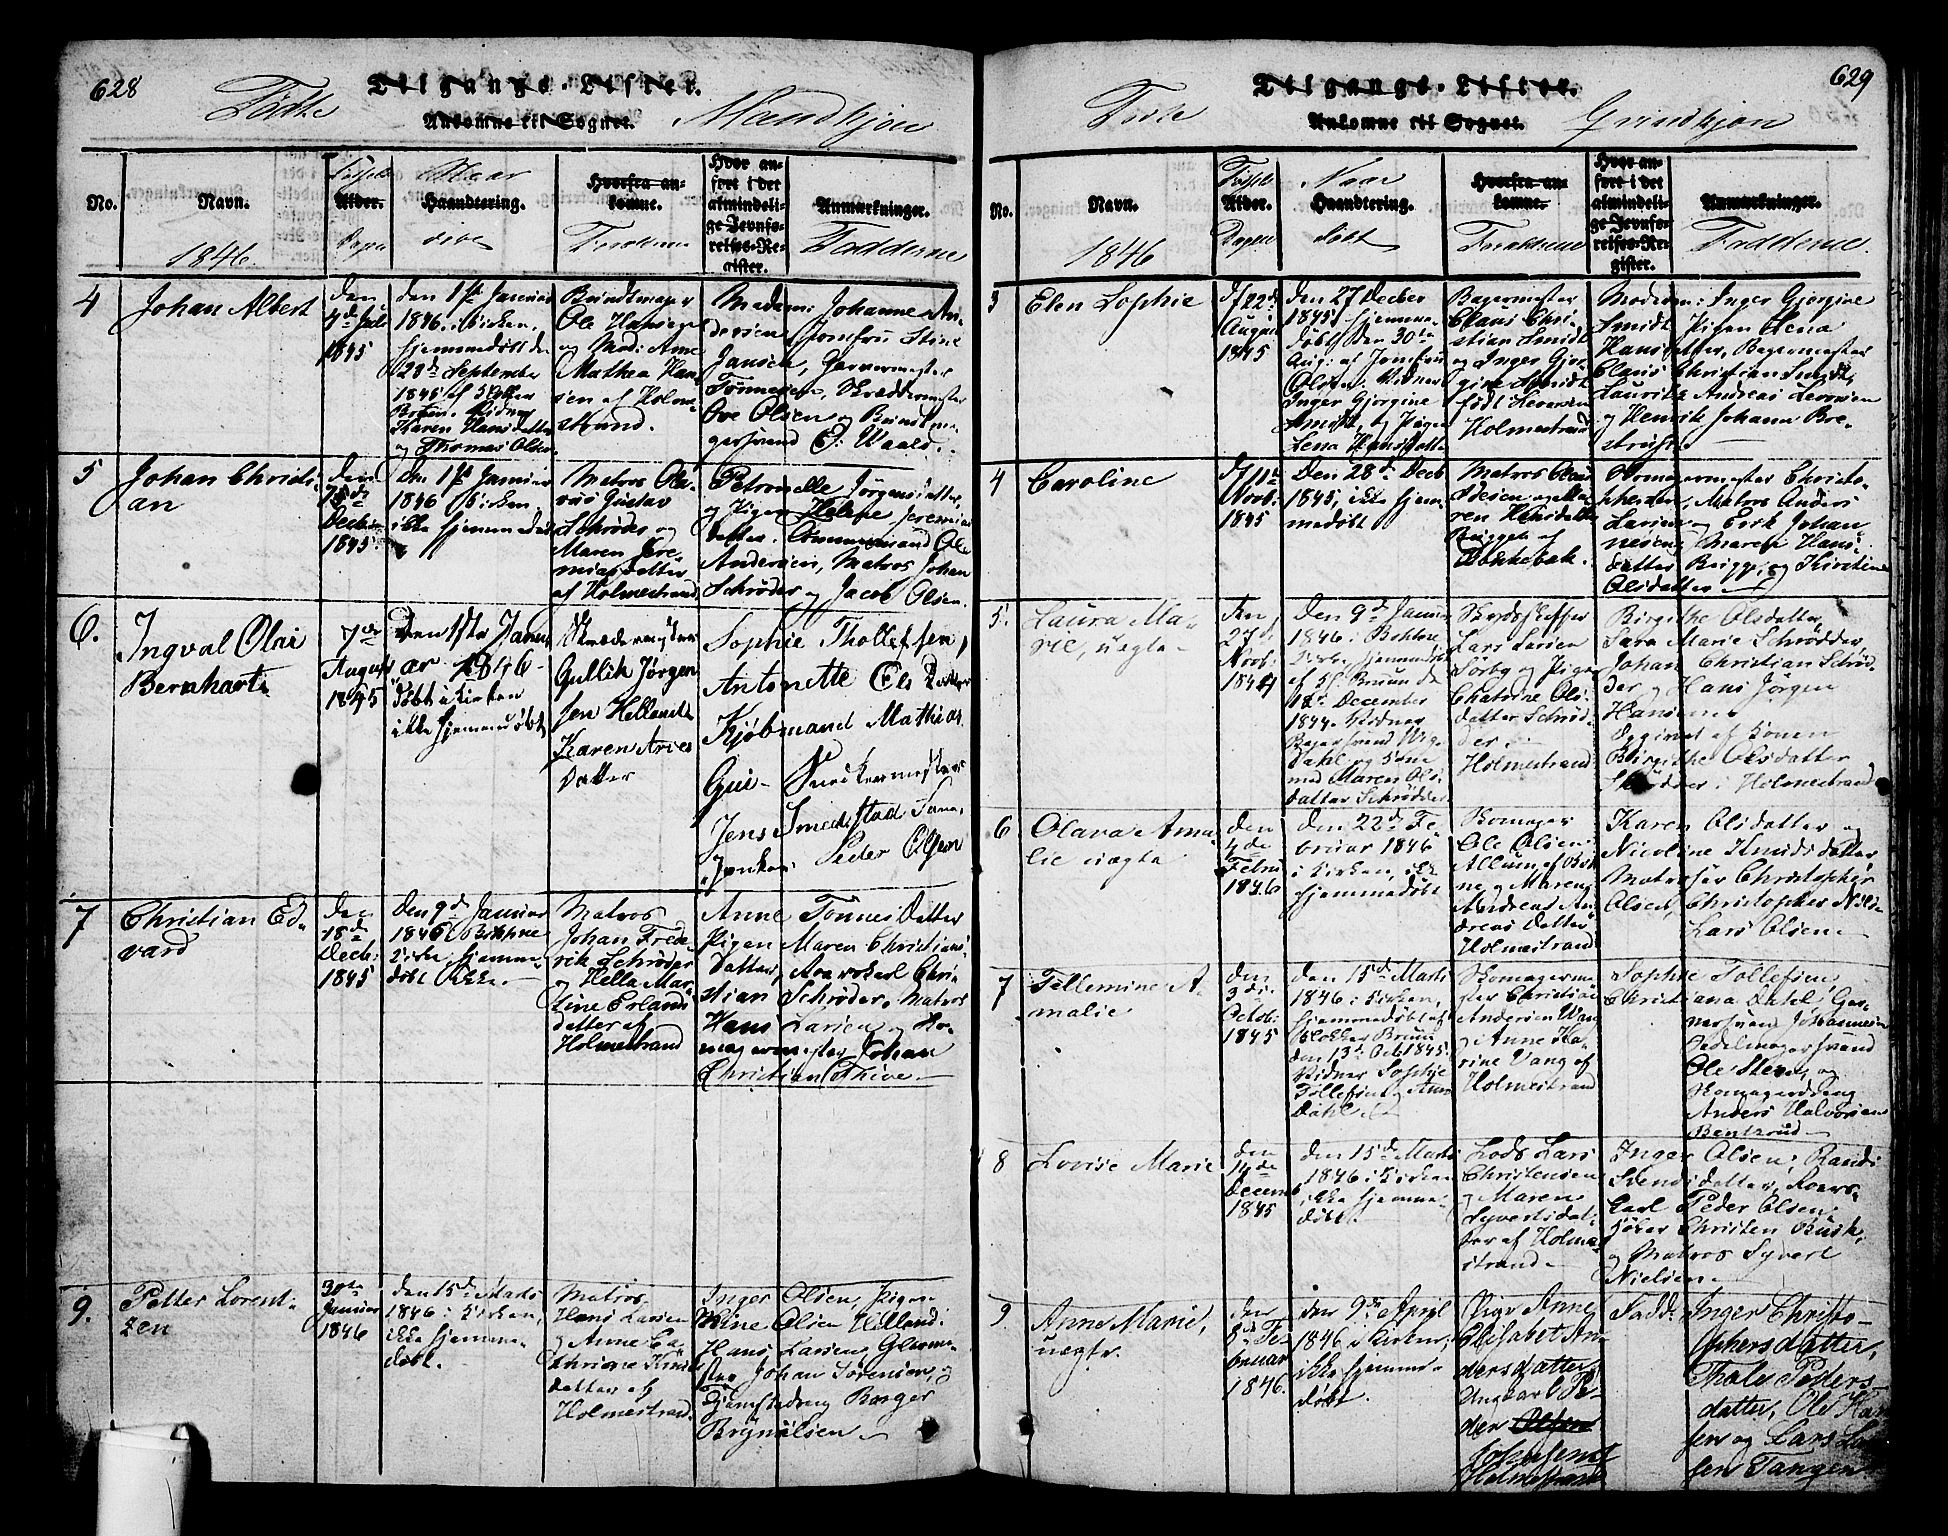 628
Tilgangs-Lister.
Fødte
Ankomne til Sognet.
Mandkjøn
No.
Navn.
1846.
Fødsels
Alder.
Dage
Naar
Haandtering.
døbt
Hvorfra an-
komne.
Forældrene
Hvor an-
ført i det
almindeli-
ge Jevnfø-
relses-Re-
gister.
Anmærkninger.
Fadderne
4
Johan Albert
den
4de Juli
1845
den 1ste Januar
1846 i Kirken,
hjemmedøbt den
28de September
1845 af Klokker
Bruun. Vidner
Karen Hansdatter
og Thomas Olsen
Bundtmager
Ole Hansen
og Mad: Anne
Mathea Han-
sen af Holme-
strand.
Madam: Johanne An-
dersen, Jomfru Stine
Jansen, Garvermester
Tønnesen, Skræddermester
Ove Olsen og Bundtma-
gersvend E. Waald.
5
Johan Christi-
an
den
25de
Decbr
1845
den 1ste Januar
1846 i Kirken
ikke hjemmedøbt
Matros Ola-
rius Gustav
Schrøder og
Maren Jere-
miasdatter
af Holmestrand
Petronelle Jørgensdatter,
og Pigen Helene Jeremias
datter. Commersand Ole
Andersen, Matros Johan
Schrøder og Jacob Olsen.
6.
Ingval Olai
Bernhart
7de
August
1845
Den 1ste Janu-
ar 1846
døbt i Kirken
ikke hjemmedøbt
Skrædermester
Gullik Jørgen
sen Helland
Karen Aries
Datter
Sophie Thollefsen,
Antonette Els Datter
Kjøbmand Mathias
Gui- Snedkermester
Jens Smedstad Tand
Jonker. Peder Olsen
7
Christian Ed-
vard
den
18de
Decb:
1845
den 9de Januar
1846 i Bothne
Kirke, hjemme-
døbt ikke.
Matros
Johan Frede-
rik Schrøder
og Hella Mar-
tine Erlands
datter af
Holmestrand
Anne Tønnes Datter
Pigen Maren Christians
Datter, Avarskarl Chri-
stian Schrøder, Matros
Hans Larsen og Sko-
magermester Johan
Christian Thive.
9.
Petter Lorent-
zen
30te
Januar
1846
den 15de Marts
1846 i Kirken,
ikke hjemme-
døbt.
Matros
Hans Larsen
og Anne Ca-
thrine Knuds
datter af
Holmestrand.
Inger Olsen, Pigen
Mine Olsen Helland:
Hans Larsen, Glarme-
ster Johan Sørensen, og
Gjæstgiver Borger
Brynolsen.
629
Tilgangs-Lister.
Fødte
Ankomne til Sognet.
Qvindkjøn
No.
Navn.
1846
Fødsels
Alder.
Dage
Naar
Haandtering.
døbt
Hvorfra an-
komne.
Forældrene
Hvor an-
ført i det
almindeli-
ge Jevnfø-
relses-Re-
gister.
Anmærkninger.
Fadderne
3
Elen Sophie
d/22de
August
1845
den 27 Decber
1845, hjemme-
døbt den 30te
Aug: af Jomfru
Olsen. Vidner
Inger Gjorgine
Smidt, og Pigen
Lena Hansdatter
Bagermester
Claus Chri-
stian Smidt
og Inger Gjor
gine Smidt
født Iversen
Holmestrand
Moderen: Inger Gjorgine
Smidt, Pigen Lena
Hansdatter, Bagermester
Claus Christian Smidt,
Lauritz Andreas Iversen
og Henrik Johann Bre-
strup.
4
Caroline
d/11te
Novb:
1845
Den 28de Decb
1845, ikke hjem-
medøbt
Matros Claus
Olesen og Ka-
ren Hansdatter
Brygge af
Bakkebak.
Skomagermester Christo-
phersen, Matros Anders
Larsen og Erik Johan
nesen, Maren Hans-
datter Brygge, og Kirstine
Olsdatter.
5.
Laura Ma-
rie, uægte
den
27de
Novb:
1844
den 9de Januar
1846 i Bothne
Kirke. hjemmedøbt
af Kl. Bruun de
18de December
1844. Vidner
Bagersvend Vige
Dahl og Kone
med Maren Ols-
datter Schrødder
Skydsskaffer
Lars Larsen
Sørby og Pigen
Chatrine Ols-
datter Schrød-
der.
Holmestrand
Birgithe Olsdatter
Sara Marie Schrødder
Johan Christian Schrød-
der og Hans Jørgen
Hansen
Opgivet af Konen
Birgithe Olsdatter
Schrødder i Holmestrand
6
Olava Ama-
lie uægte
den
4de
Febru
1846
den 22de Fe-
bruar 1846
i Kirken, ikke
hjemmedøbt
Skomager
Ole Olsen
Allum af Both-
ne, og Maren
Andreas An-
dreas Datter
Holmestrand
Karen Olsdatter og
Nicoline Knudsdatter,
Matroser Christopher
Olsen, Christopher Nils
Lars Olsen
7
Tillemine A-
malie
den
3die
Octob:
1845
den 15de Marts
1846 i Kirken,
hjemmedøbt af
Klokker Bruun
den 13de Oct 1845.
Vidner Sophie
Tollefsen og Anne
Dahl.
Skomagerme-
ster Christian
Andersen Wang
og Anne Ka-
rine Vang af
Holmestrand
Sophie Tollefsen
Christiana Dahl, Gar-
versvend Johannesen
Sadelmagersvend
Ole Steen, og
Skomagerdreng
Anders Halvorsen
Bentsrud
8
Lovise Marie
den
14de
Decemb
1845
den 15de Marts
1846 i Kirken
ikke hjemme-
døbt.
Lods Lars
Christensen
og Maren
Syvertsdat-
ter af Holme-
strand
Inger Olsen, Randi
Svendsdatter, Roers-
karl Peder Olsen,
Høker Christen Busk,
og Matros Syvert
Nielsen.
9
Anne Marie,
uægte.
den
8de Fe-
bruar
1846.
den 9de April
1846 i Kirken,
ikke hjemme-
døbt.
Pige Anne
Elisabet An-
dersdatter
Ungkarl Pe-
der Olsen
Johnsen
Holmestrand
Fadd: Inger Christo-
phersdatter,
Thale Peders-
datter, Ole Han
sen og Lars Lar
sen Tangen